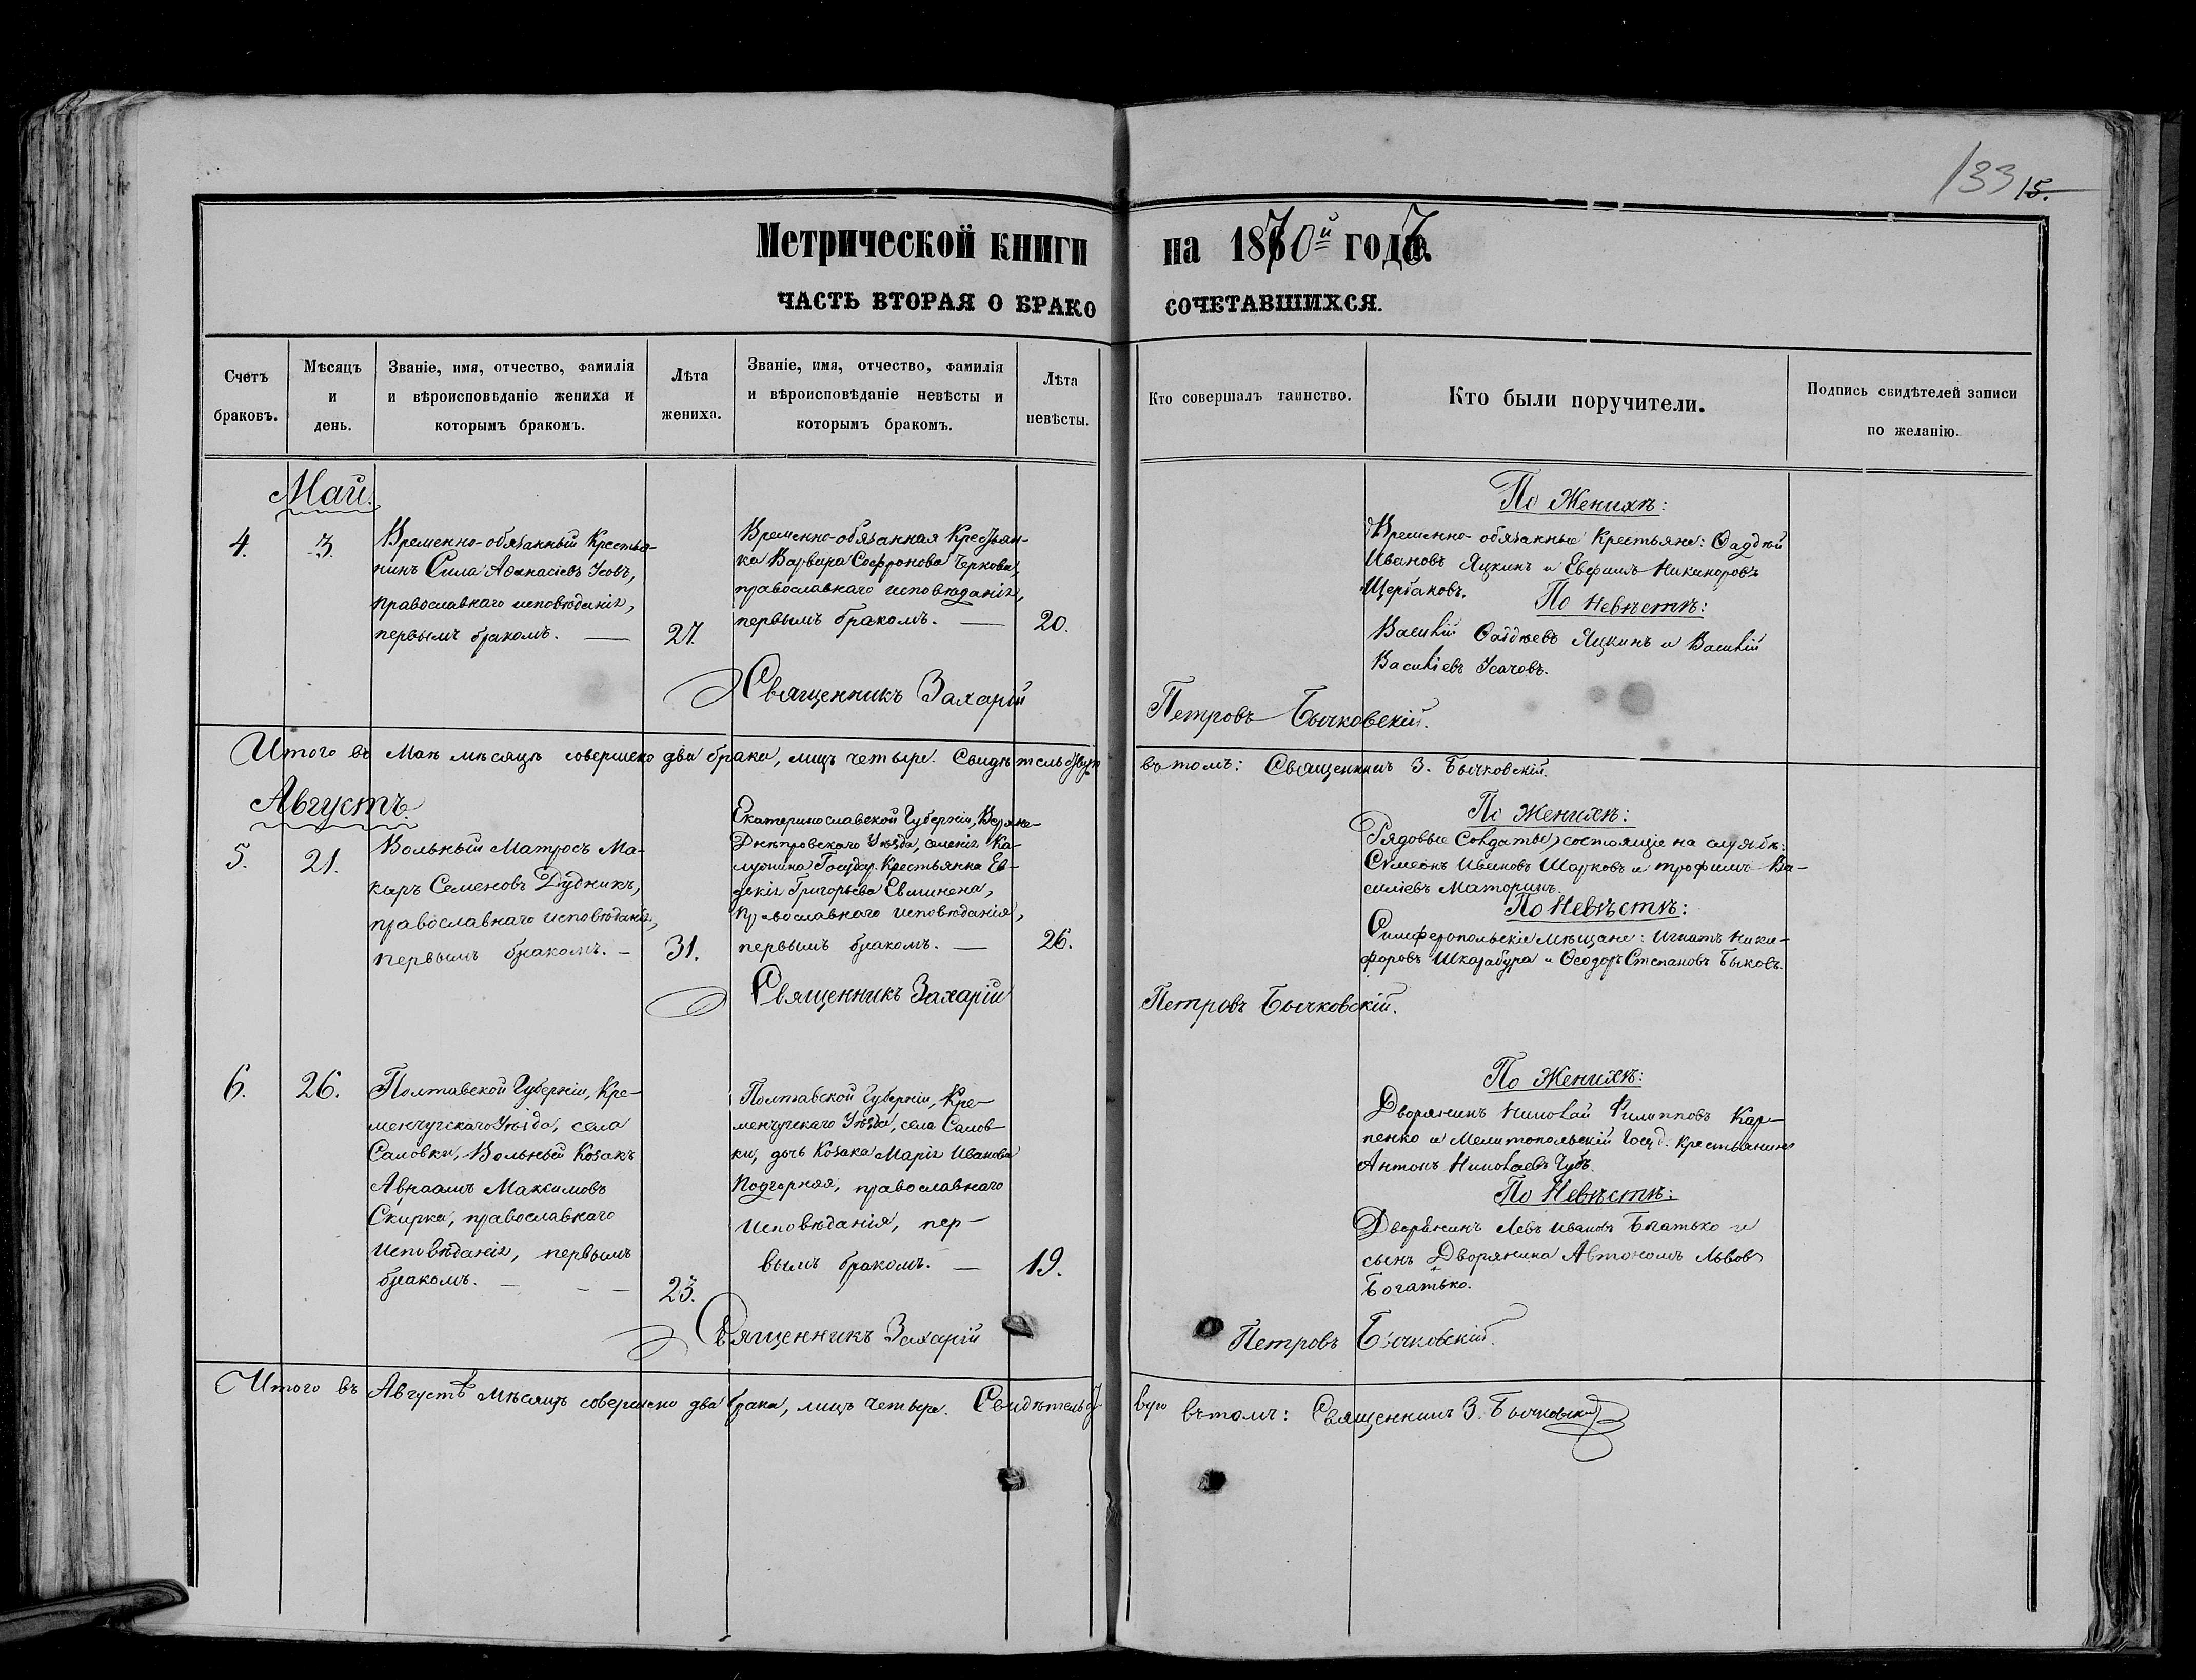 133 15.
Метрической книги на 1870й годъ.
ЧАСТЬ ВТОРАЯ О БРАКОСОЧЕТАВШИХСЯ.
Счетъ
браковъ.
Мѣсяцъ
и
день.
Званіе, имя, отчество, фамилія
и вѣроисповѣданіе жениха и
которымъ бракомъ.
Лѣта
жениха.
Званіе, имя, отчество, фамилія
и вѣроисповѣданіе невѣсты и
которымъ бракомъ.
Лѣта
невѣсты.
Кто совершалъ таинство.
Кто были поручители.
Подпись свидѣтелей записи
по желанію.
Май.
4.
3.
Временно-обязанный Крестья-
нинъ Сила Аѳанасіевъ Усовъ,
православнаго исповѣданія,
первымъ бракомъ. —
27.
Временно-обязанная Крестьян-
ка Варвара Софронова Черкова,
православнаго исповѣданія,
первымъ бракомъ. —
20.
По Женихѣ:
Временно-обязанные Крестьяне: Ѳаддѣй
Ивановъ Яцкинъ и Евфимъ Никаноровъ
Щербаковъ.
По Невѣстѣ:
Василій Ѳаддѣевъ Яцкинъ и Василій
Василіевъ Усачовъ.
Священникъ Захарій Петровъ Бычковскій.
Итого въ Маѣ мѣсяцѣ совершено два брака, лицъ четыре. Свидѣтельствую въ томъ: Священникъ З. Бычковскій.
Августъ.
5.
21.
Вольный Матросъ Ма-
каръ Семеновъ Дудникъ,
православнаго исповѣданія,
первымъ бракомъ. —
31.
Екатеринославской Губерніи, Верхне-
Днѣпровскаго Уѣзда, селенія Ка-
Государ. Крестьянка Ев-
докія Григорьева Евминена,
православнаго исповѣданія,
первымъ бракомъ. —
26.
По Женихѣ:
Рядовые Солдаты, состоящіе на службѣ:
Сѵмеонъ Ивановъ Шарковъ и Трофимъ Ва-
силіевъ Маторинъ.
По Невѣстѣ:
Симферопольскіе мѣщане: Игнатъ Ники-
форовъ Шкарабура и Ѳеодоръ Степановъ Быковъ.
Священникъ Захарій Петровъ Бычковскій.
6.
26.
Полтавской Губерніи, Кре-
менчугскаго Уѣзда, села
Саловки, Вольный Козакъ
Авраамъ Максимовъ
Скирка, православнаго
исповѣданія, первымъ
бракомъ. — — —
23.
Полтавской Губерніи, Кре-
менчугскаго Уѣзда, села Салов-
ки, дочь Козака Марія Иванова
Подгорная, православнаго
исповѣданія, пер-
вымъ бракомъ. —
19.
По Женихѣ:
Дворянинъ Николай Филипповъ Кар-
пенко и Мелитопольскій Госуд. крестьянинъ
Антонъ Николаевъ Чубъ.
По Невѣстѣ:
Дворянинъ Левъ Ивановъ Богатько и
сынъ Дворянина Автономъ Львовъ
Богатько.
Священникъ Захарій Петровъ Бычковскій.
Итого въ Августѣ мѣсяцѣ совершено два брака, лицъ четыре. Свидѣтельствую въ томъ: Священникъ З. Бычковскій